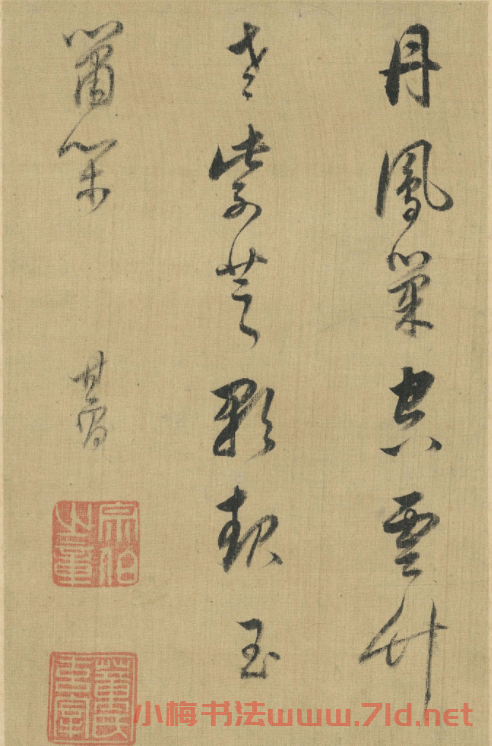 丹鳳巢空雲竹
老紫芝歌歇玉
簫
其昌
宗伯之章
董氏玄宰
小梅书法www.7ld.net